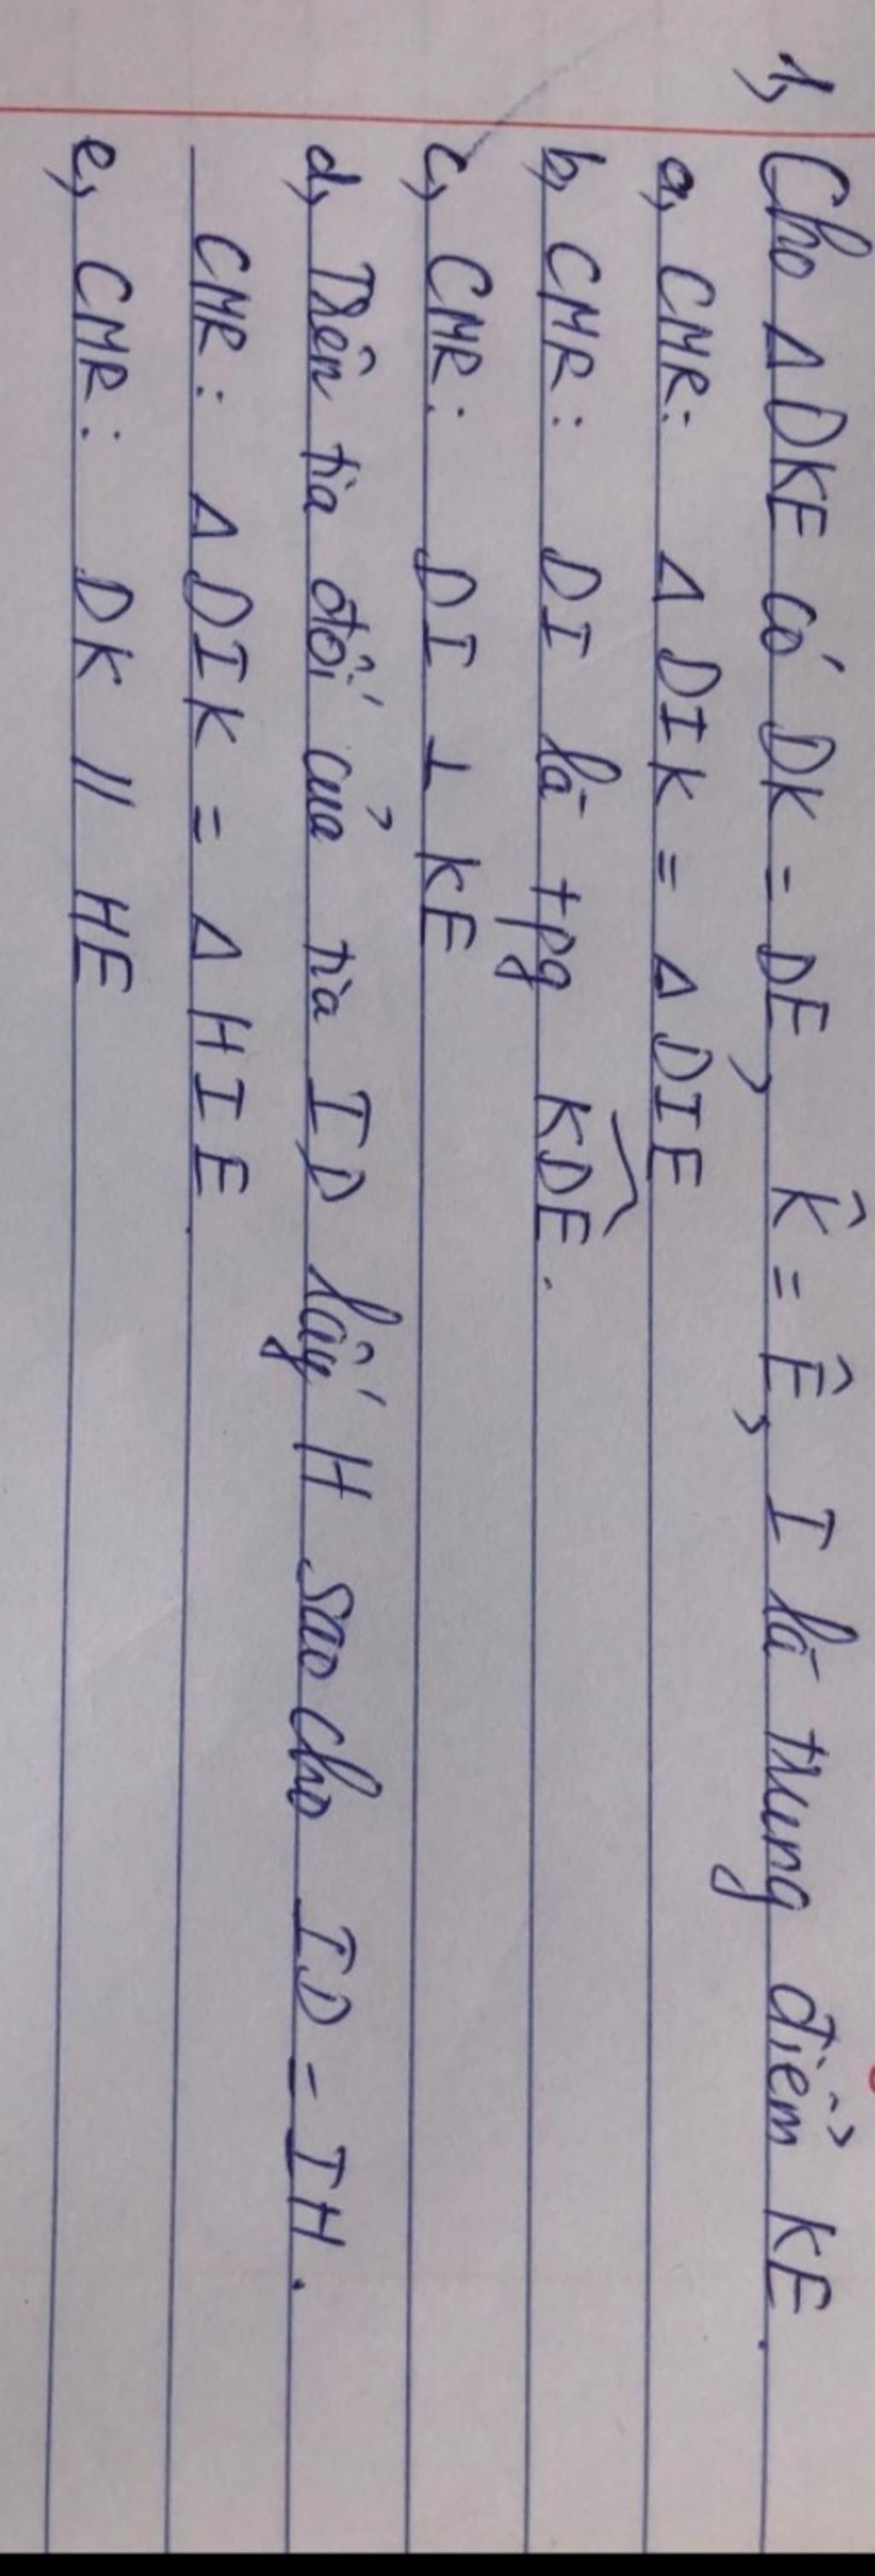 1, Cho Δ DKE có DK = DE, K̂ = Ê, I là trung điểm KE.
a, CMR: Δ DIK = Δ DIE
b, CMR: DI là tpg K͡DE.
c, CMR: DI ⊥ KE
d, Trên tia đối của tia ID lấy H sao cho ID = IH.
CMR: Δ DIK = Δ HIE.
e, CMR: DK // HE